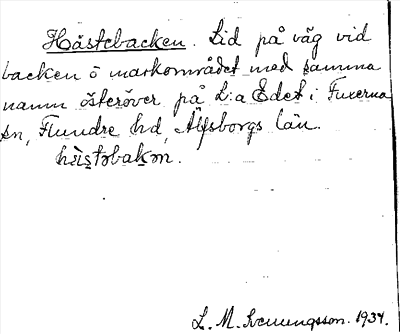 Hästebacken. Lid på väg vid
backen o markområdet med samma
namn österöver på L:a Edet i Fuxerna
sn, Flundre hd, Älfsborgs län.
hìstəbakən.
L. M. Svenungsson. 1934.